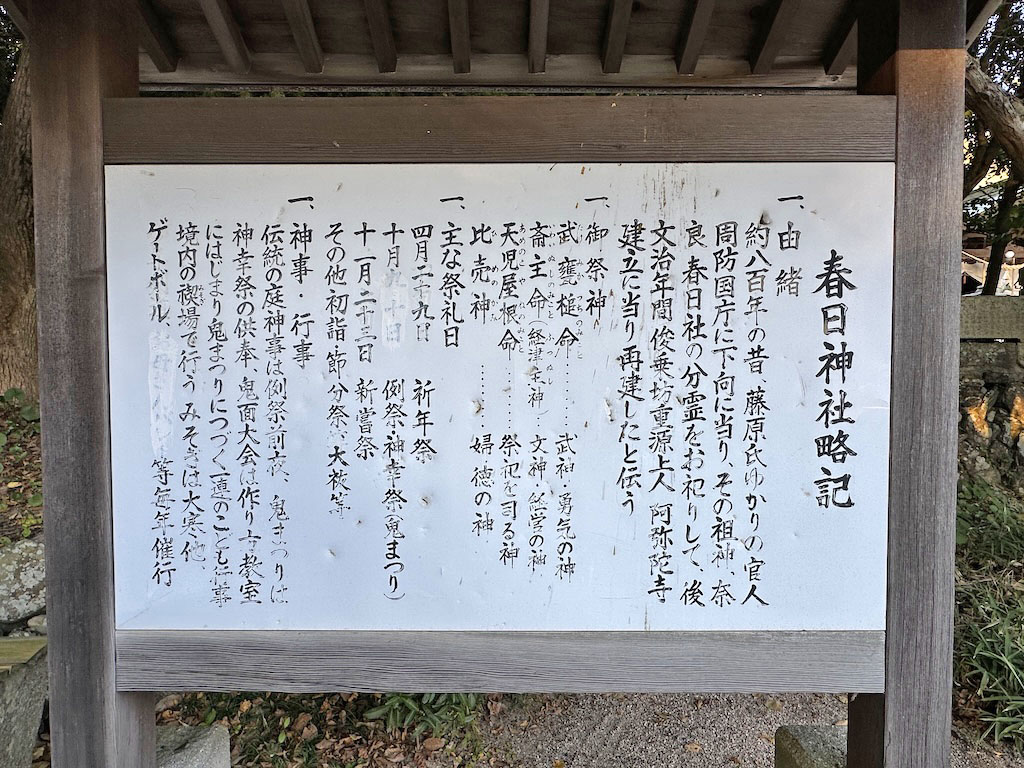 春日神社略記
一、由緒
約八百年の昔、藤原氏ゆかりの官人
周防国庁に下向に当り、その祖神、奈
良、春日社の分霊をお祀りして、後
文治年間 俊乗坊重源上人 阿弥陀寺
建立に当り再建したと伝う
一、御祭神
武甕槌命………武神・勇気の神
斎主命(経津主神) 文神・経営の神
天児屋根命………祭祀を司る神
比売神………婦徳の神
一、主な祭礼日
四月二十九日 祈年祭
十月 十日 例祭・神幸祭(鬼まつり)
十一月二十三日 新嘗祭
その他初詣、節分祭、大祓等
一、神事・行事
伝統の庭神事は例祭前夜、鬼まつりは
神幸祭の供奉、鬼面大会は作り方教室
にはじまり鬼まつりにつづく一連のこども行事
境内の禊場で行うみそぎは大寒、他、
ゲートボール 等毎年催行